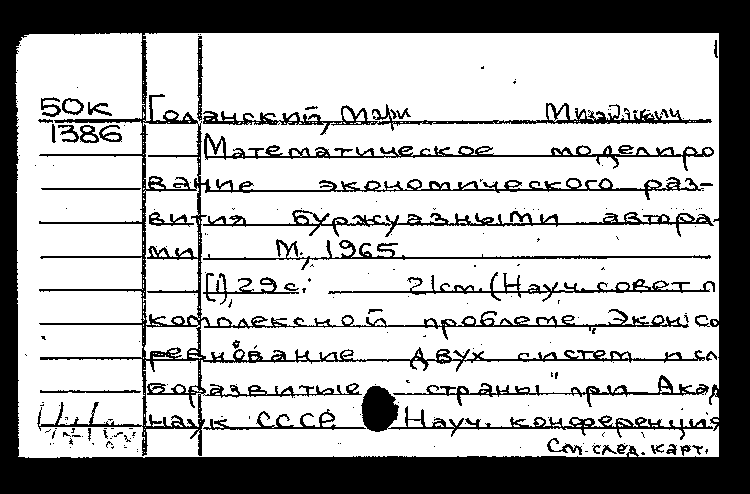 50К
1386
Голанский, Мари Михайлович
Математическое моделиро
вание экономического раз-
вития буржуазными автора-
ми. М., 1965.
[1], 29 с. 21 см. (Науч. совет п
комплексной проблеме „Экон. со
ревнование двух систем и сл
боразвитые страны" при Акад
наук СССР. Науч. конференция
См. след. карт.